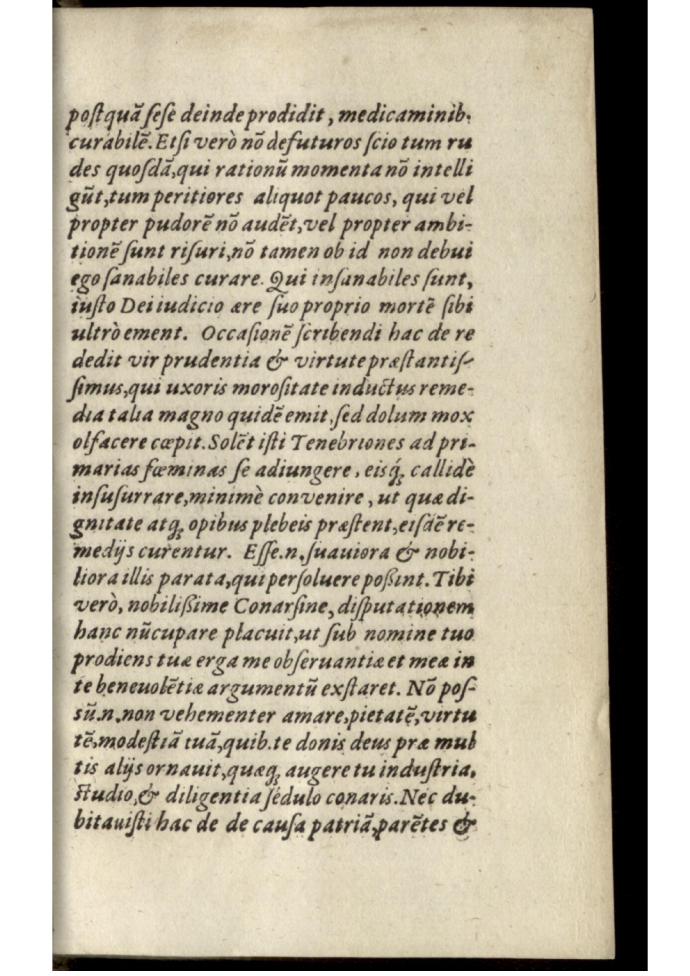 postquã sese deinde prodidit, medicaminib.
curabilẽ. Etsi verò nõ defuturos scio tum ru
des quosdã, qui rationũ momenta nõ intelli
gũt, tum peritiores aliquot paucos, qui vel
propter pudorẽ nõ audẽt, vel propter ambi-
tionẽ sunt risuri, nõ tamen ob id non debui
ego sanabiles curare. Qui insanabiles sunt,
iusto Dei iudicio ære suo proprio mortẽ sibi
ultrò ement. Occasionẽ scribendi hac de re
dedit vir prudentia & virtute præstantis-
simus, qui uxoris morositate inductus reme-
dia talia magno quidẽ emit, sed dolum mox
olfacere cœpit. Solẽt isti Tenebriones ad pri-
marias fœminas se adiungere, eisq́; callidè
insusurrare, minimè convenire, ut quæ di-
gnitate atq; opibus plebeis præstent, eisdẽ re-
medijs curentur. Esse.n. suaviora & nobi-
liora illis parata, qui persoluere poßint. Tibi
verò, nobilißime Conarsine, disputationem
hanc nũcupare placuit, ut sub nomine tuo
prodiens tuæ erga me observantiæ et meæ in
te beneuolẽtiæ argumentũ exstaret. Nõ pos-
sũ.n. non vehementer amare, pietatẽ, virtu
tẽ, modestiã tuã, quib. te donis deus præ mul
tis alijs ornauit, quæq; augere tu industria,
studio, & diligentia sedulo conaris. Nec du-
bitauisti hac de de causa patriã, parẽtes &